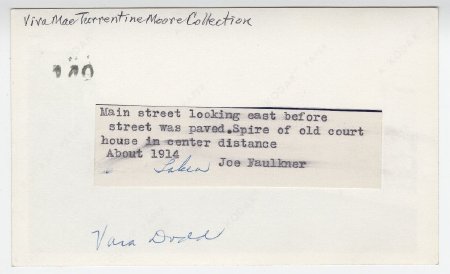 Viva Mae Turrentine Moore Collection
140
Main street looking east before
street was paved.Spire of old court
house in center distance
About 1914
Joe Faulkner
Vara Dodd